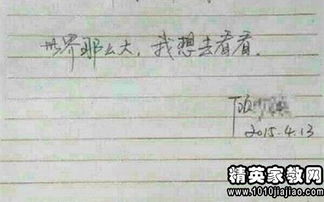 世界那么大，我想去看看。
顾
2015.4.13
精英家教网
www.1010jiajiao.com